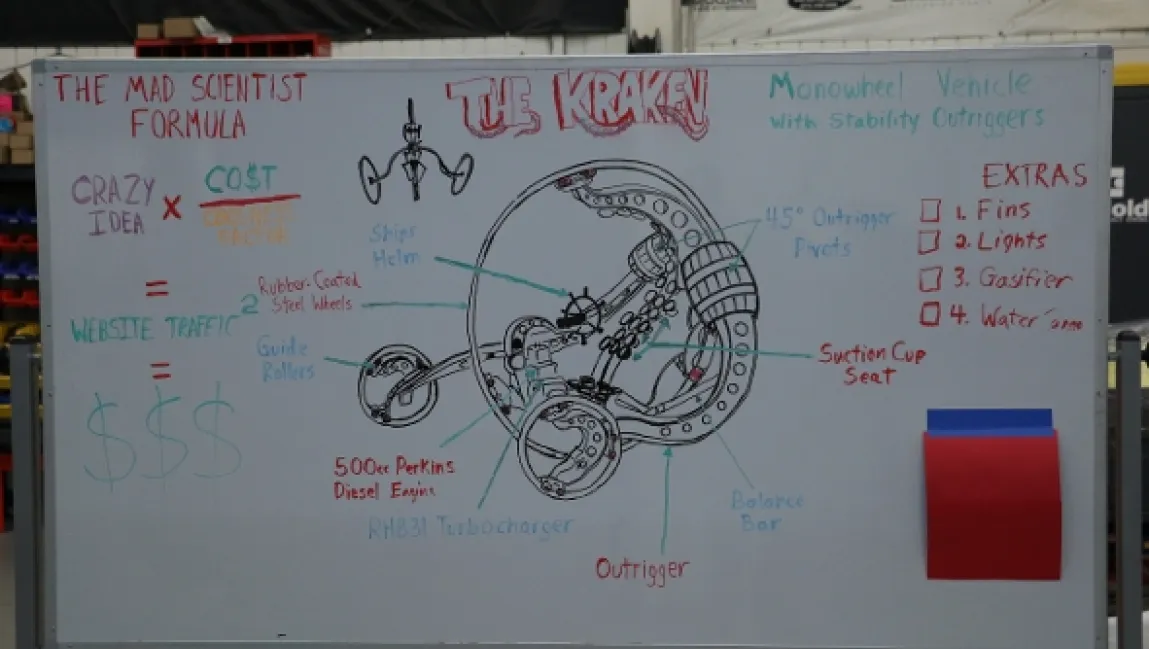 THE MAD SCIENTIST
FORMULA
CRAZY
IDEA
X
CO$T
FACTOR
=
WEBSITE TRAFFIC
2
=
$ $ $
THE KRAKEN
Monowheel Vehicle
With Stability Outriggers
Ships
Helm
45° Outrigger
Pivots
Rubber-Coated
Steel Wheels
Guide
Rollers
500cc Perkins
Diesel Engine
RH831 Turbocharger
Outrigger
Balance
Bar
Suction Cup
Seat
EXTRAS
1. Fins
2. Lights
3. Gasifier
4. Water
old